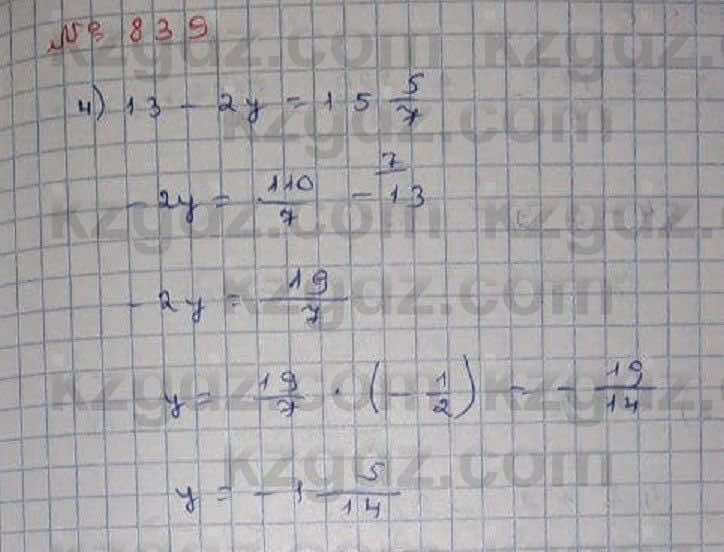 № 839
4) 13 - 2y = 15 5/7
-2y = 110/7 - 13
7
-2y = 19/7
y = 19/7 · (-1/2) = -19/14
y = -1 5/14
kzgdz.com
kzgdz.
kzgdz.com
kzgdz.com
kzgdz.
kzgdz.com
kzgdz.com
kzgdz.
kzgdz.com